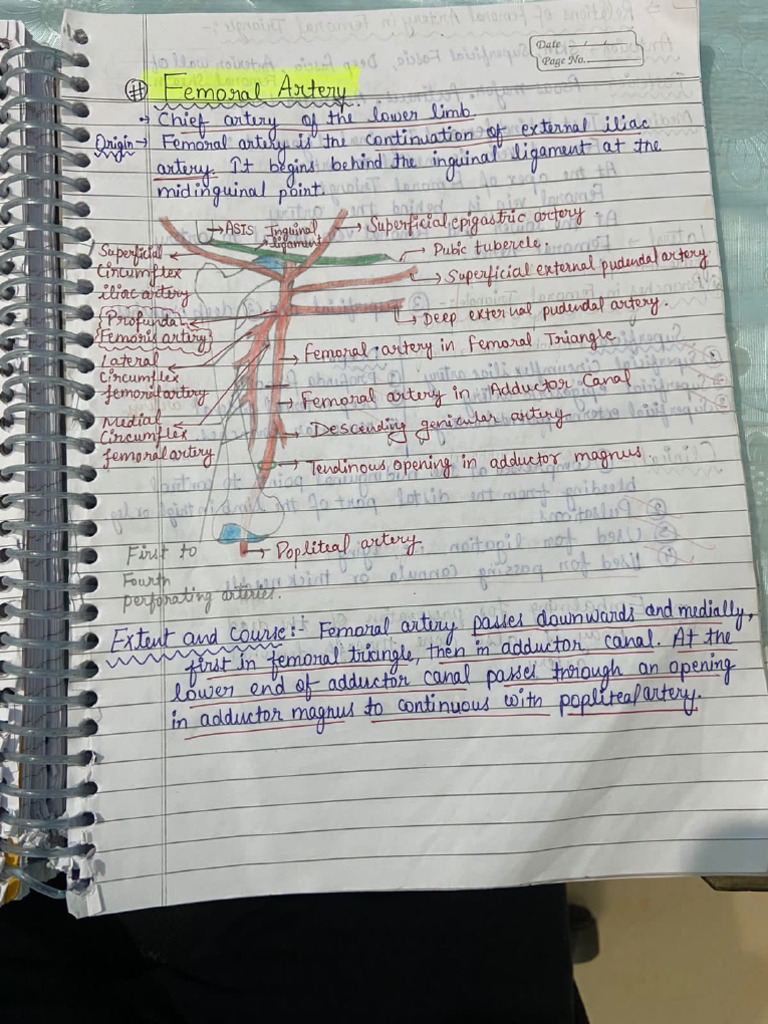 Date / /
Page No.
# Femoral Artery
→ Chief artery of the lower limb.
Origin → Femoral artery is the continuation of external iliac
artery. It begins behind the inguinal ligament at the
midinguinal point.
ASIS
Inguinal
ligament
Superficial epigastric artery
Pubic tubercle.
Superficial external pudendal artery
Deep external pudendal artery.
Superficial
Circumflex
iliac artery
Profunda
Femoris artery
Lateral
Circumflex
femoral artery
Medial
Circumflex
femoral artery
Femoral artery in Femoral Triangle
Femoral artery in Adductor Canal
Descending genicular artery
Tendinous opening in adductor magnus.
Popliteal artery
First to
Fourth
perforating arteries.
Extent and Course:- Femoral artery passes downwards and medially,
first in femoral triangle, then in adductor canal. At the
lower end of adductor canal passes through an opening
in adductor magnus to continuous with popliteal artery.